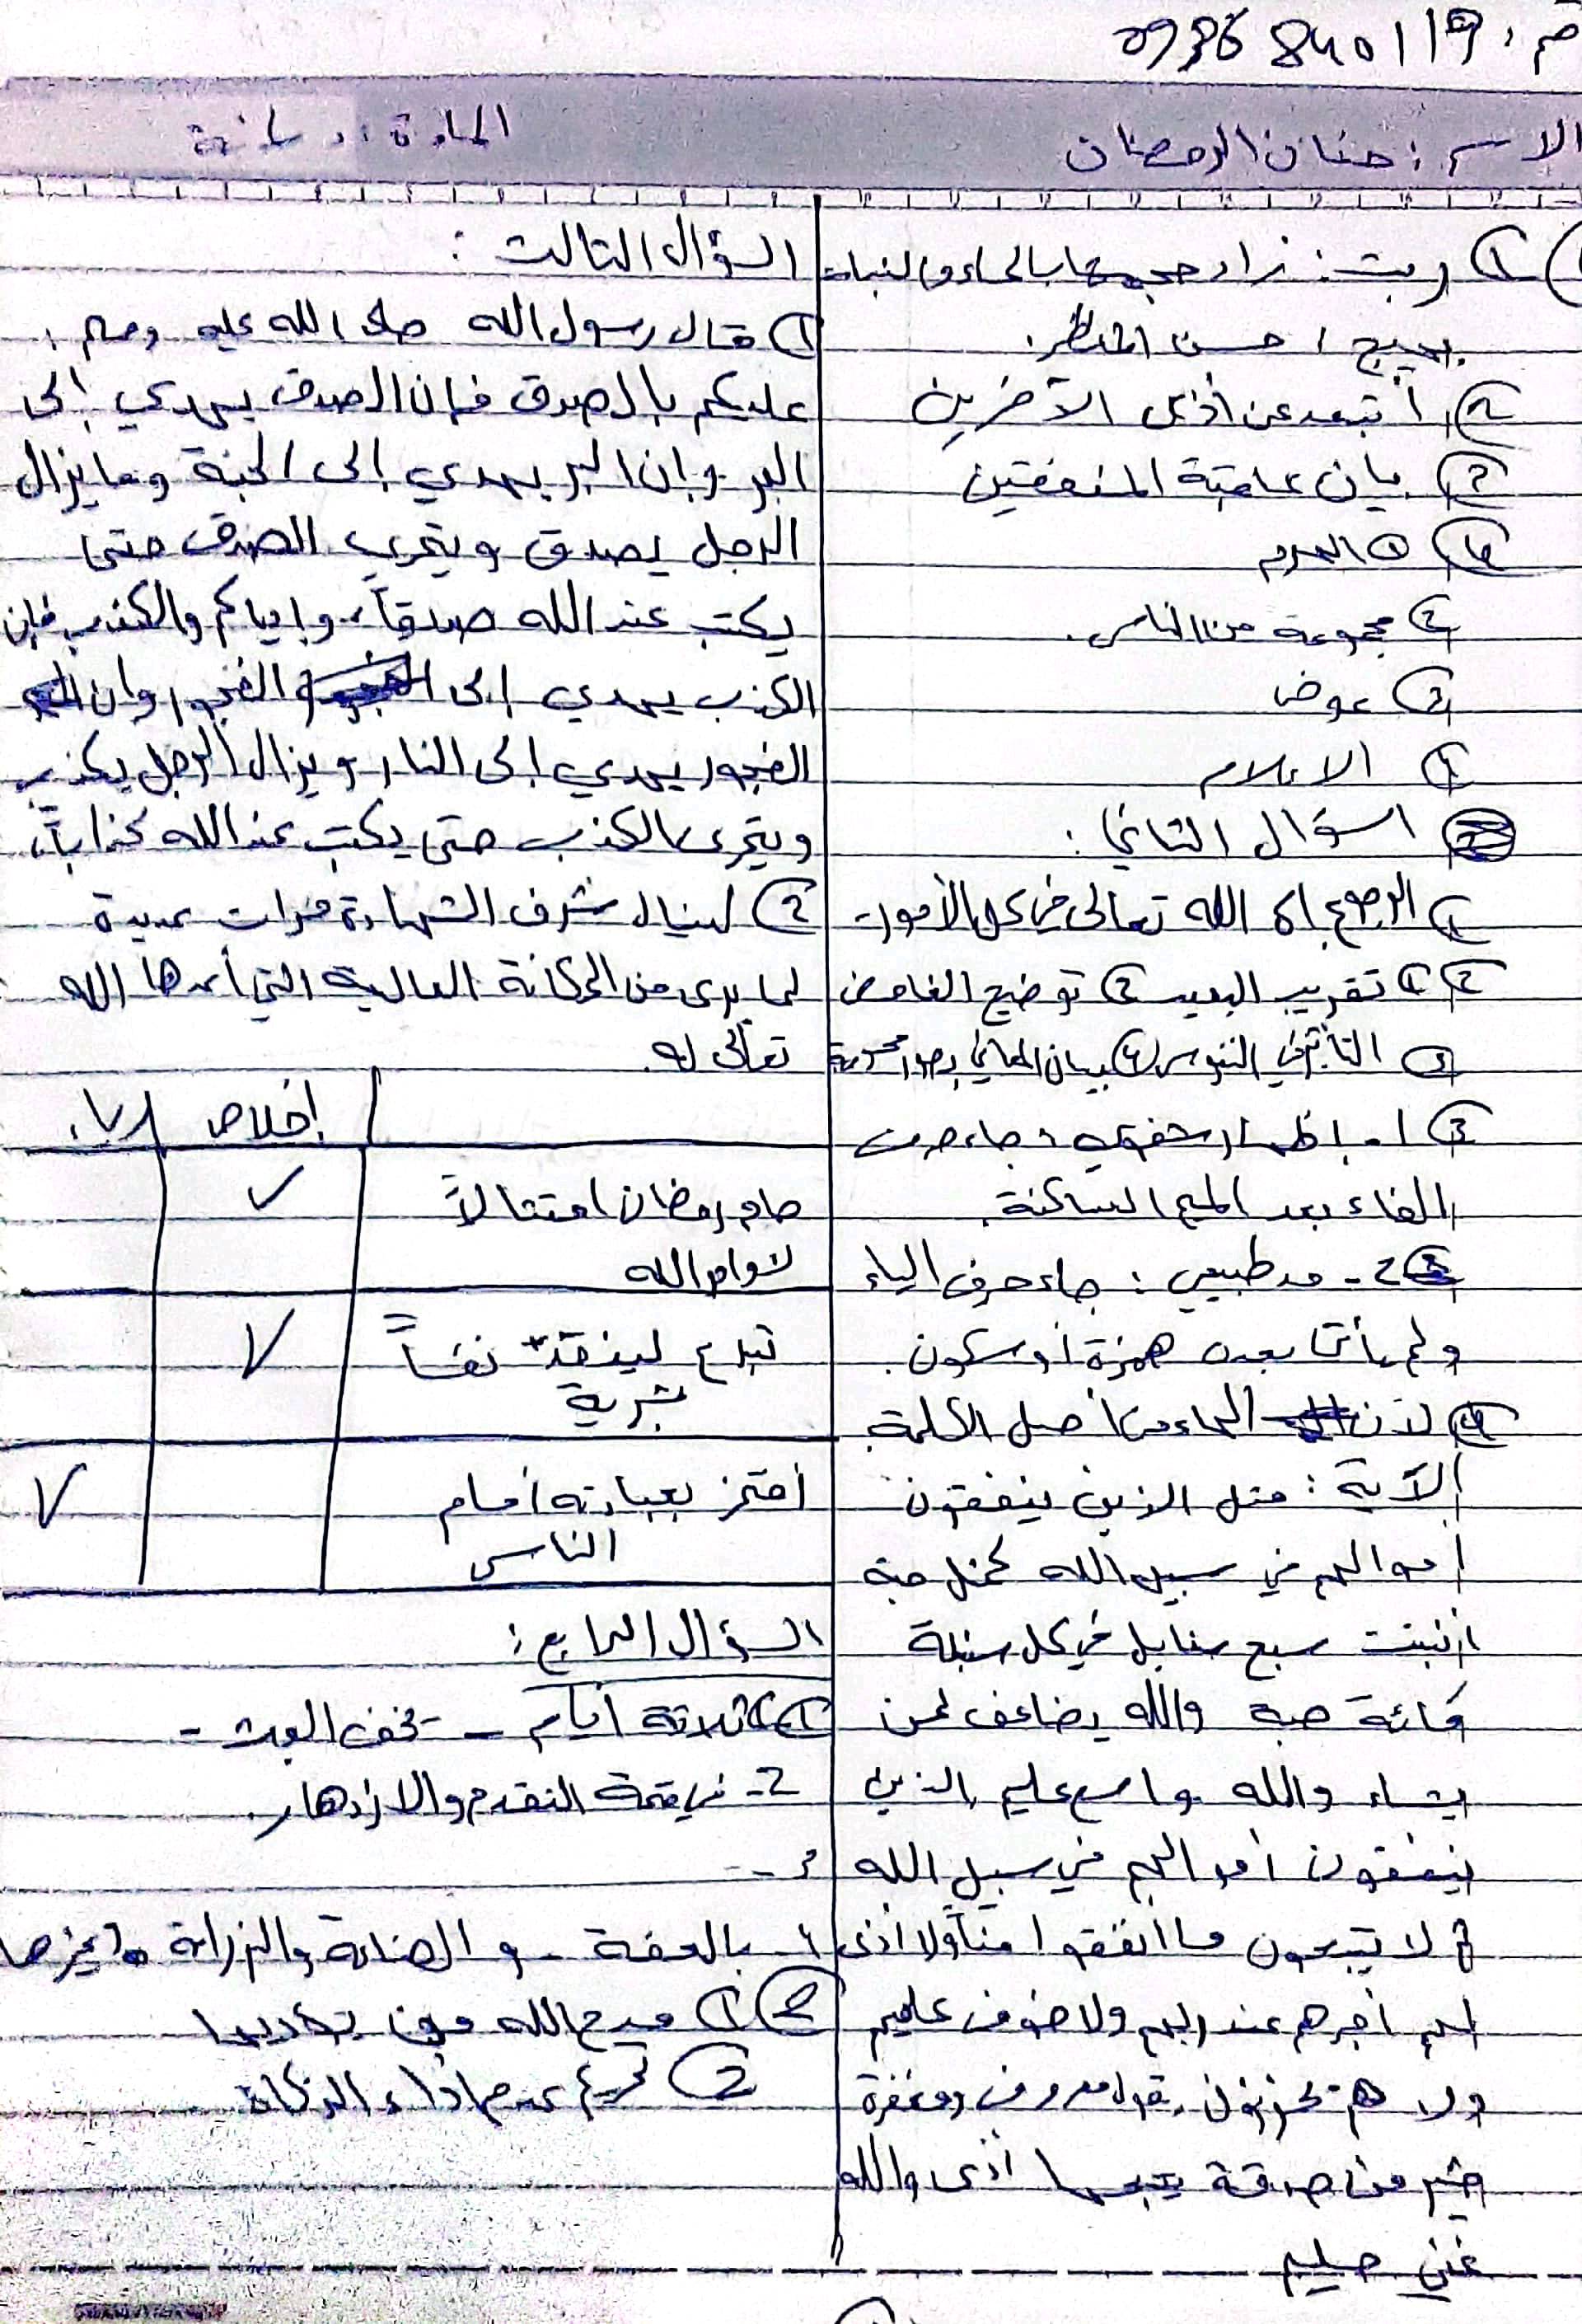 رقم : 0936840119
الاسم : حنان الرمضان
المادة : ديانة
1) ① ربت : زاد حجمها بالماء والنبات
بهيج : حسن المنظر.
② أبتعد عن أذى الآخرين
③ بيان عاقبة المنفقين
④ ① المحروم
② مجموعة من الناس.
③ عوض
④ الاعلام
السؤال الثاني :
① الرجوع إلى الله تعالى في كل الأمور
② ① تقريب البعيد ② توضيح الغامض
③ التأثير في النفوس ④ بيان المعاني بصور محسوسة
③ 1- إظهار شفوي : جاء حرف
الفاء بعد الميم الساكنة.
2- مد طبيعي : جاء حرف الياء
ولم يأت بعده همزة أو سكون.
④ لأن الهاء من أصل الكلمة
الآية : مثل الذين ينفقون
أموالهم في سبيل الله كمثل حبة
أنبتت سبع سنابل في كل سنبلة
مائة حبة والله يضاعف لمن
يشاء والله واسع عليم الذين
ينفقون أموالهم في سبيل الله
ثم لا يتبعون ما أنفقوا مناً ولا أذى
لهم أجرهم عند ربهم ولا خوف عليهم
ولا هم يحزنون. قول معروف ومغفرة
خير من صدقة يتبعها أذى والله
غني حليم
السؤال الثالث :
① قال رسول الله صلى الله عليه وسلم :
عليكم بالصدق فإن الصدق يهدي إلى
البر وإن البر يهدي إلى الجنة وما يزال
الرجل يصدق ويتحرى الصدق حتى
يكتب عند الله صدقاً، وإياكم والكذب فإن
الكذب يهدي إلى الفجور وان
الفجور يهدي إلى النار ويزال الرجل يكذب
ويتحرى الكذب حتى يكتب عند الله كذاباً،
② لينال شرف الشهادة مرات عديدة
لما يرى من المكانة العالية التي أعدها الله
تعالى له.
إخلاص رياء
صام رمضان امتثالاً ✓
لأوامر الله
تبرع لينقذ نفساً ✓
بشرية
افتخر بعبادته أمام ✓
الناس
السؤال الرابع :
① 1) ثلاثة أيام - تخف العدة -
2- في قمة التقدم والازدهار.
3 --
4- بالعفة - و الصناعة والزراعة
② ① مدح الله من يؤديها
② تحريم عدم أداء الزكاة